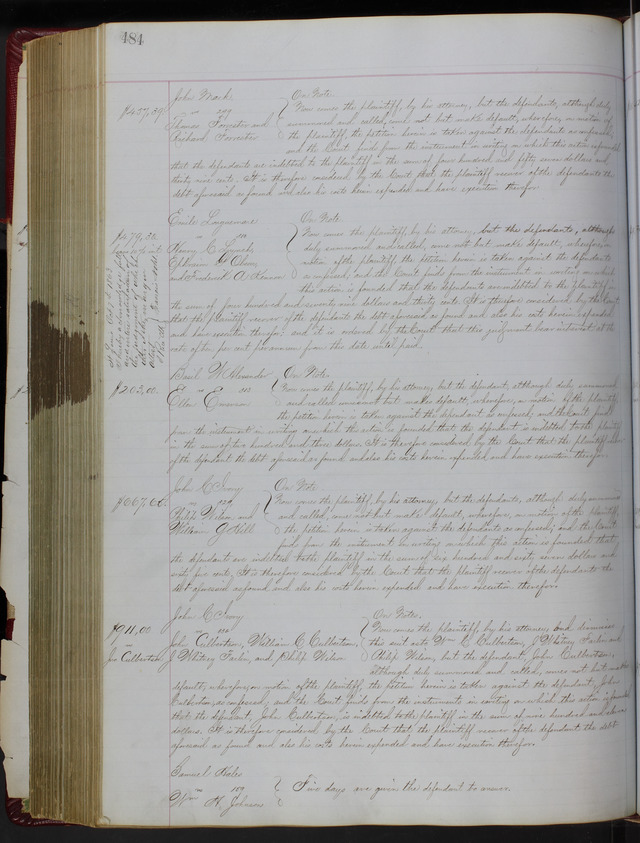 484
John Mack
$457,39 vs 209 On Note
Thomas Forrester and Now comes the plaintiff, by his attorney, but the defendants, although duly
Richard Forrester summoned and called, come not but make default, wherefore, on motion of
the plaintiff, the petition herein is taken against the defendants as confessed,
and the Court finds from the instrument in writing on which this action is founded
that the defendants are indebted to the plaintiff in the sum of four hundred and fifty seven dollars and
thirty nine cents. It is therefore considered by the Court that the plaintiff recover of the defendants the
debt aforesaid as found and also his costs herein expended and have execution therefor.
Emile
$479,30 vs On Note
Henry C. Lynch, Now comes the plaintiff, by his attorney, but the defendants, although
Ephraim duly summoned and called, come not but make default, wherefore, on
and Frederick A. motion of the plaintiff, the petition herein is taken against the defendants
as confessed, and the Court finds from the instrument in writing on which
this action is founded that the defendants are indebted to the plaintiff in
the sum of four hundred and seventy nine dollars and thirty cents. It is therefore considered by the Court
that the plaintiff recover of the defendants the debt aforesaid as found and also his costs herein expended
and have execution therefor and it is ordered by the Court that this judgment bear interest at the
rate of ten per cent per annum from this date until paid.
Basil W. Alexander On Note
$203,00 vs
Ella Now comes the plaintiff, by his attorney, but the defendant, although duly summoned
and called, comes not but makes default, wherefore, on motion of the plaintiff,
the petition herein is taken against the defendant as confessed, and the Court finds
from the instrument in writing on which the action is founded that the defendant is indebted to the plaintiff
in the sum of two hundred and three dollars. It is therefore considered by the Court that the plaintiff recover
of the defendant the debt aforesaid as found and also his costs herein expended and have execution therefor.
John On Note
$667,60 vs
Philip Wilson and Now comes the plaintiff, by his attorney, but the defendants, although duly summoned
William and called, come not but make default, wherefore, on motion of the plaintiff,
the petition herein is taken against the defendants as confessed; and the Court
finds from the instrument in writing on which this action is founded that
the defendants are indebted to the plaintiff in the sum of six hundred and sixty seven dollars and
sixty cents. It is therefore considered by the Court that the plaintiff recover of the defendants the
debt aforesaid as found and also his costs herein expended and have execution therefor.
John On Note
$911,00 vs
Jno Culbertson John Culbertson, William C. Culbertson, Now comes the plaintiff, by his attorney, and dismisses
J. Whitney and Philip Wilson this suit as to Wm C. Culbertson, J. Whitney and
Philip Wilson, but the defendant, John Culbertson,
although duly summoned and called, comes not but makes
default; wherefore, on motion of the plaintiff, the petition herein is taken against the defendant, John
Culbertson, as confessed; and the Court finds from the instruments in writing on which this action is founded
that the defendant, John Culbertson, is indebted to the plaintiff in the sum of nine hundred and eleven
dollars. It is therefore considered by the Court that the plaintiff recover of the defendant the debt
aforesaid as found and also his costs herein expended and have execution therefor.
Samuel
vs 159 Five days are given the defendant to answer.
Wm H. Johnson